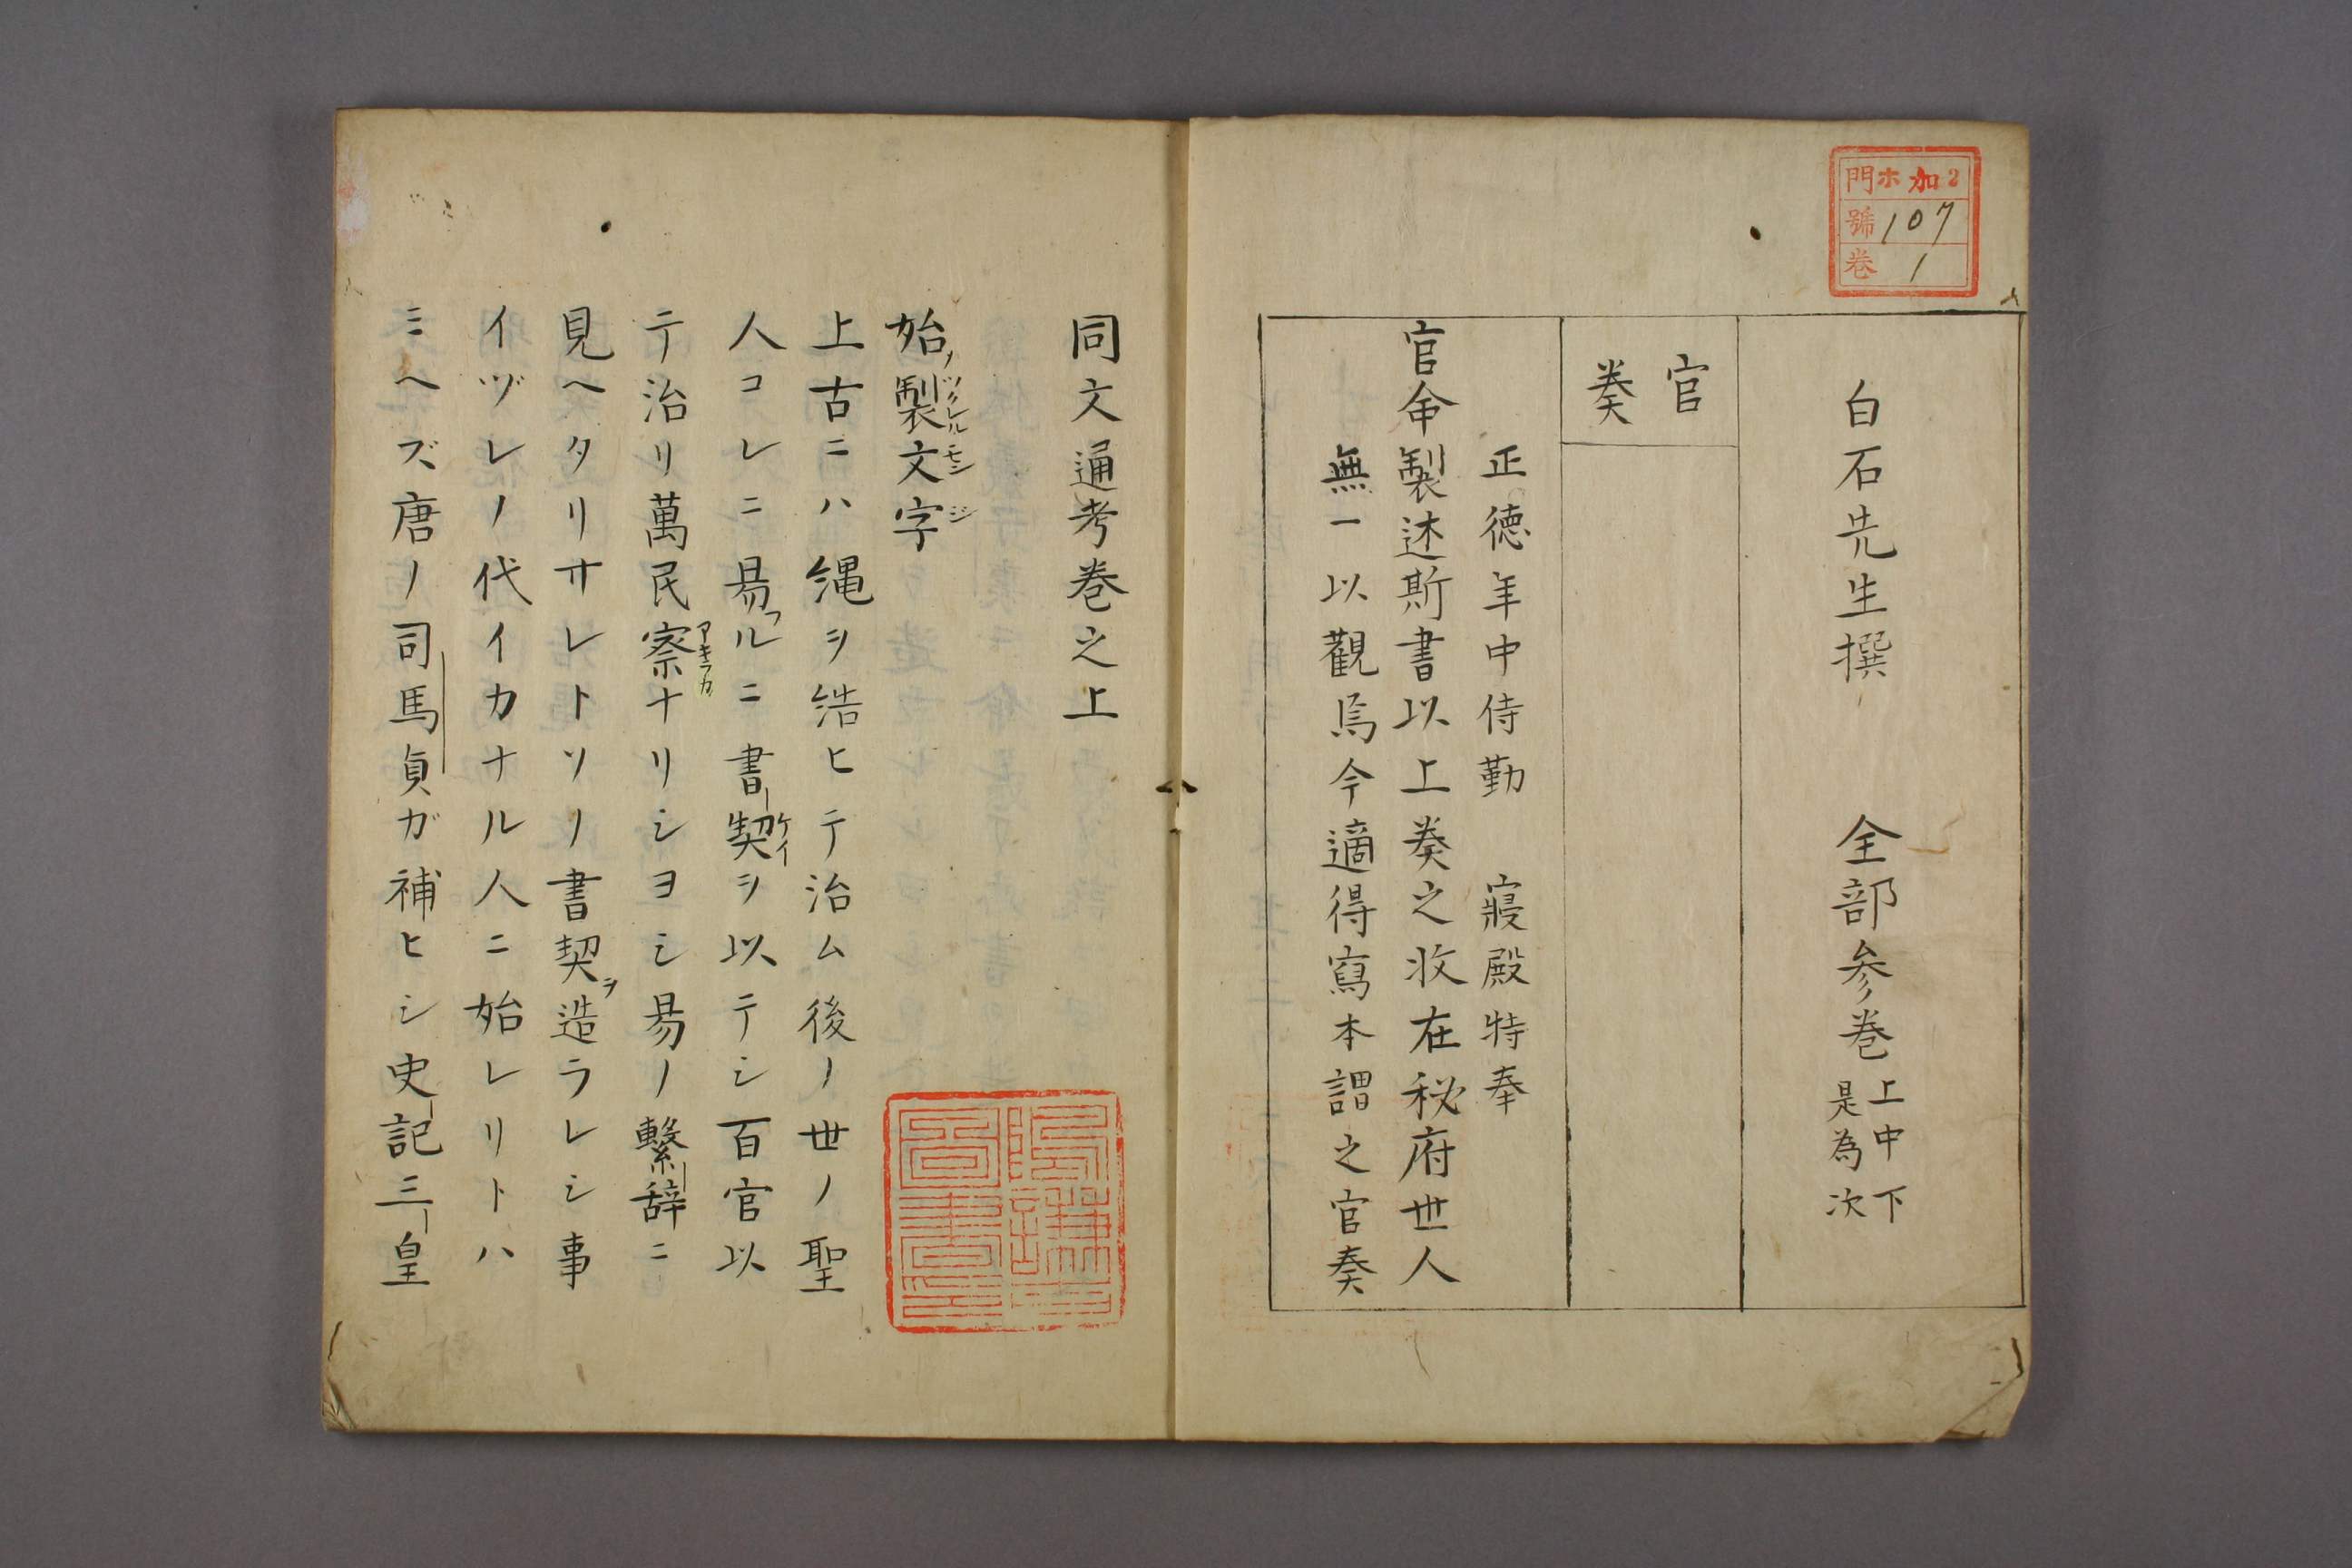 門 ホ加2
號 107
巻 1
白石先生撰 全部参巻 上中下
是為次
官
奏
正徳年中侍勤 寢殿特奉
官命製述斯書以上奏之收在秘府世人
無一以觀焉今適得寫本謂之官奏
同文通考巻之上
始ノ製ツクレル文モン字ジ
上古ニハ縄ヲ結ヒテ治ム後ノ世ノ聖
人コレニ易フルニ書契ケイヲ以テシ百官以
テ治リ萬民察アキラカナリシヨシ易ノ繫辞ニ
見ヘタリサレトソノ書契ヲ造ラレシ事
イヅレノ代イカナル人ニ始レリトハ
ミヘズ唐ノ司馬貞ガ補ヒシ史記三皇